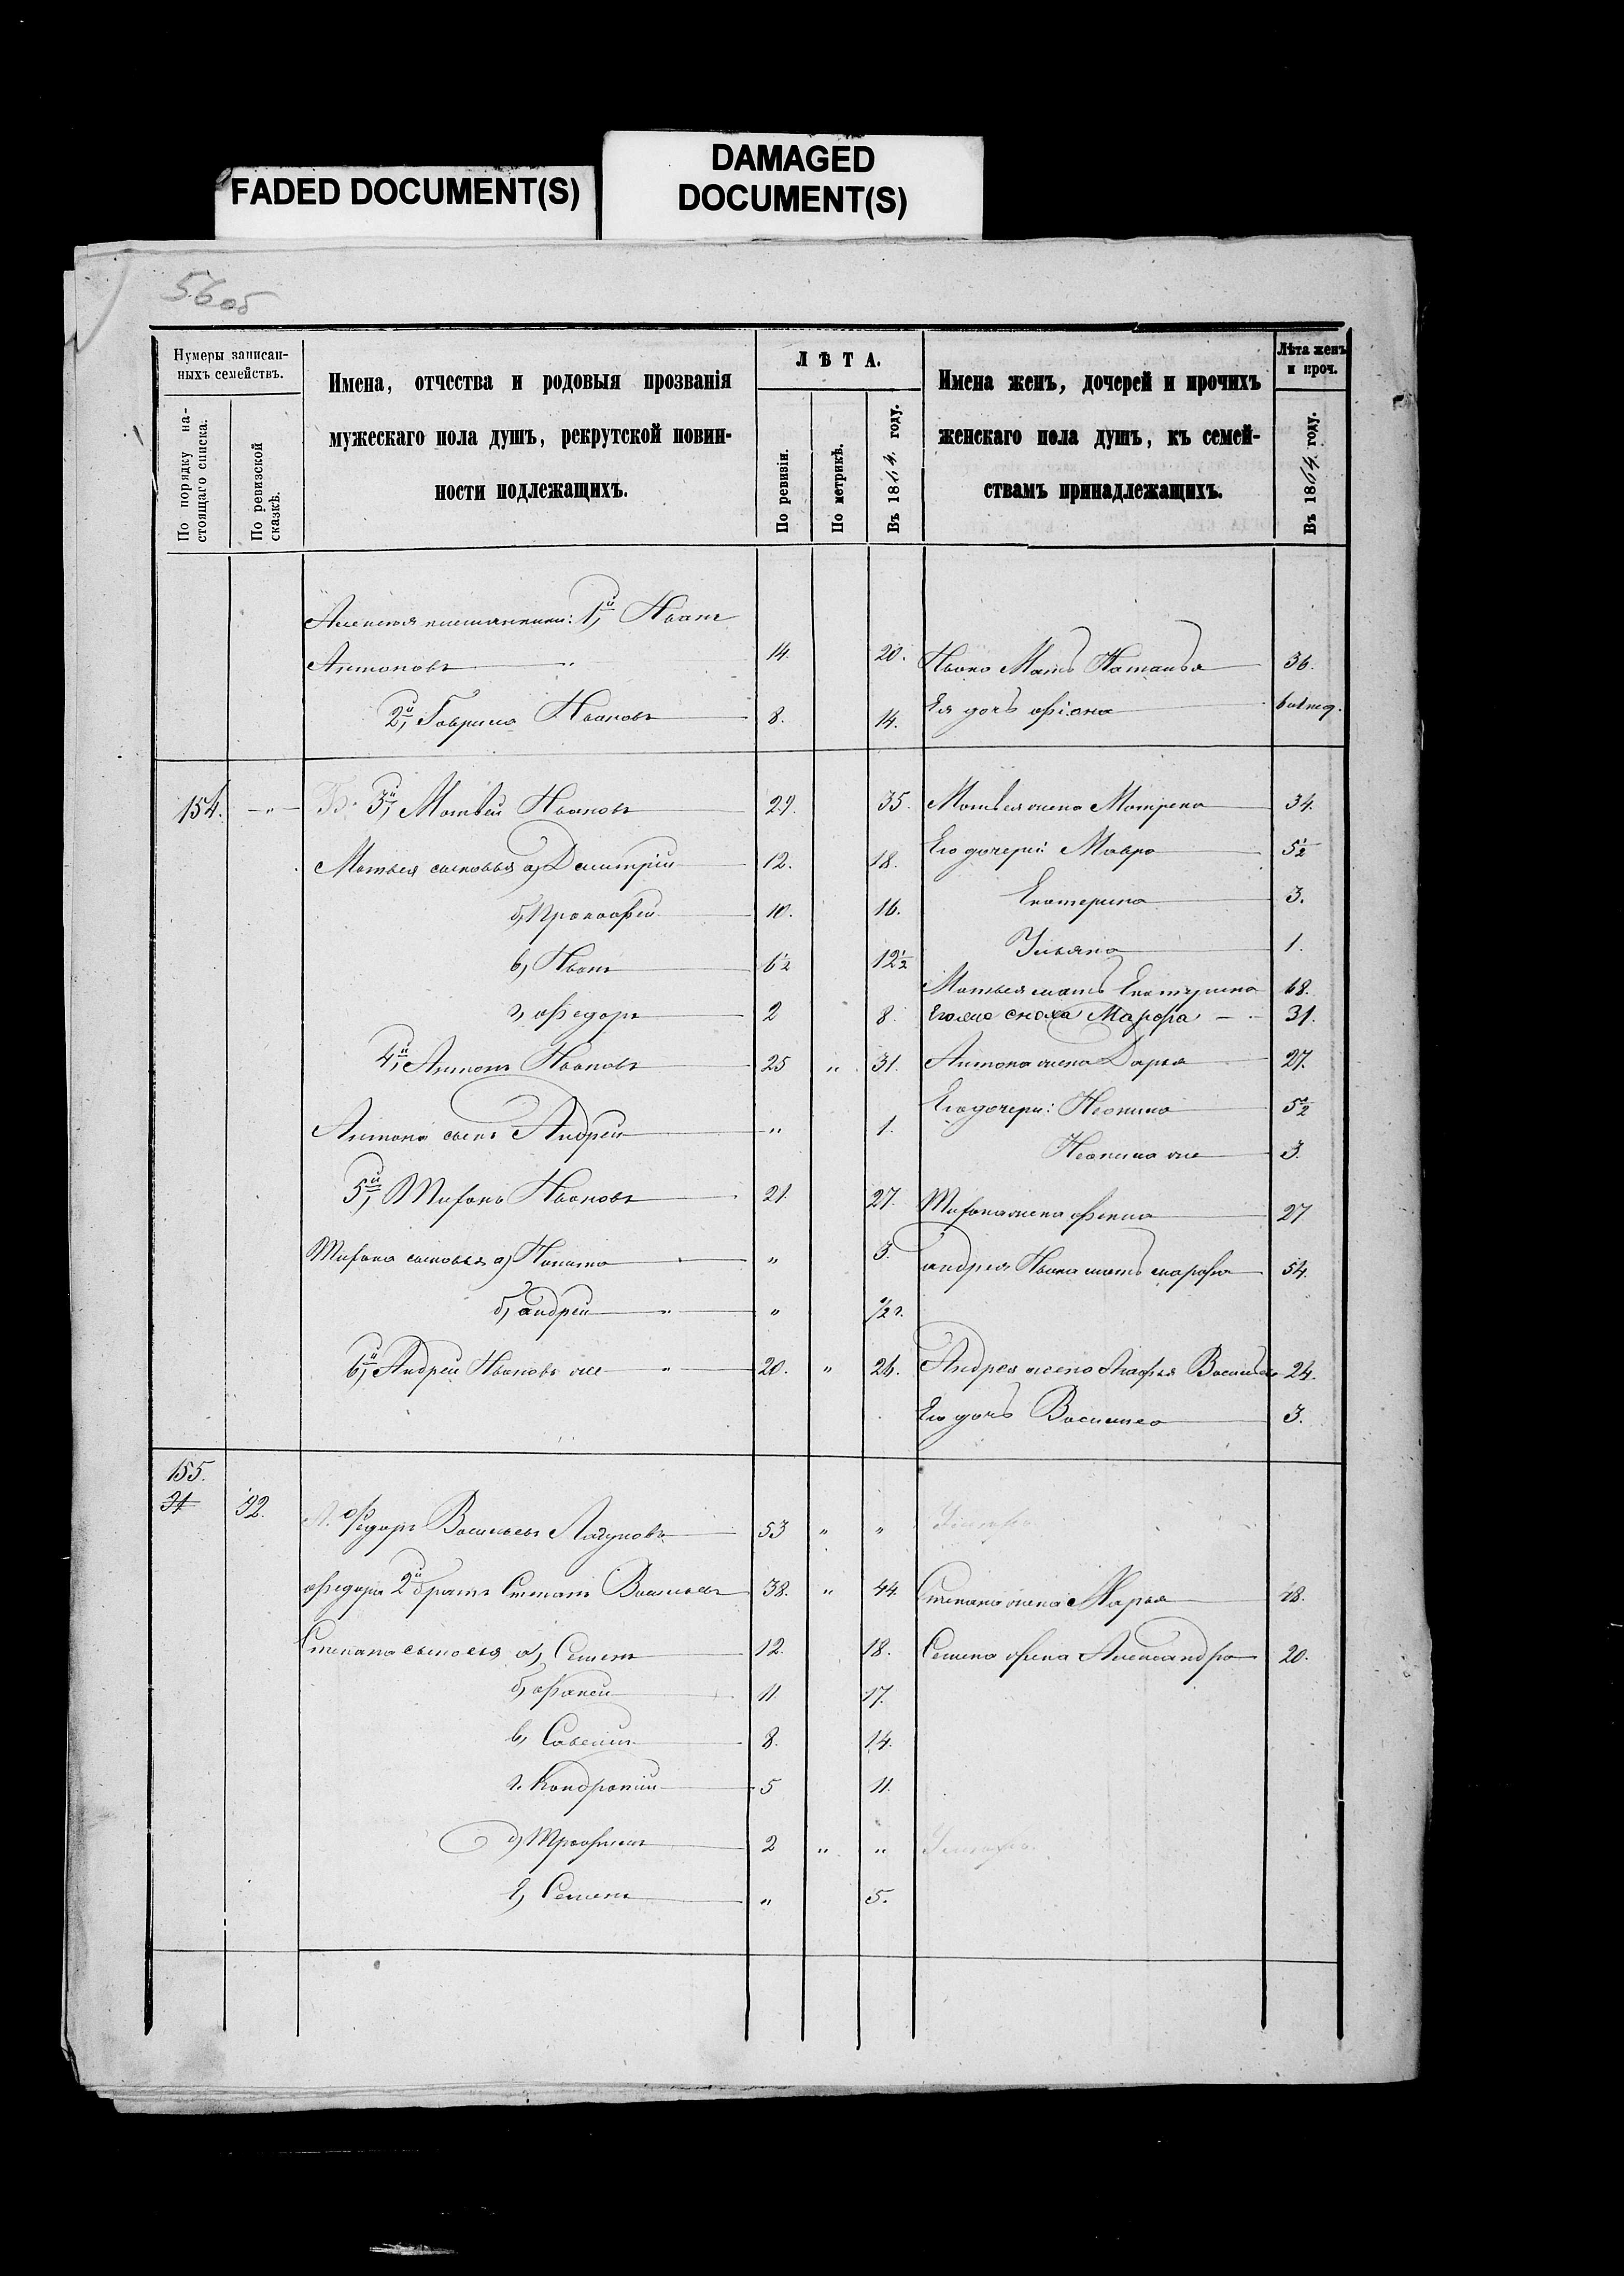 FADED DOCUMENT(S)
DAMAGED
DOCUMENT(S)
56об
Нумеры записан-
ныхъ семействъ.
По порядку на-
стоящаго списка.
По ревизской
сказкѣ.
Имена, отчества и родовыя прозванія
мужескаго пола душъ, рекрутской повин-
ности подлежащихъ.
ЛѢТА.
По ревизіи.
По метрикѣ.
Въ 1864. году.
Имена женъ, дочерей и прочихъ
женскаго пола душъ, къ семей-
ствамъ принадлежащихъ.
Лѣта женъ
и проч.
Въ 1864. году.
Алексея племянники: 1й, Иванъ
Антоновъ 14. 20. Ивана Мать Наталья 36.
2й, Гаврила Ивановъ 8. 14. Ея дочь
154. 3й, Матвей Ивановъ 29. 35. Матвея жена Матрена 34.
Матвея сыновья а) Дмитрій 12. 18. Его дочери: Мавра 5½
б) Прокофей 10. 16. Екатерина 3.
в) Иванъ 6½ 12½ Ульяна 1.
Матвея мать Екатерина 68.
г) Федоръ 2 8. сноха Марфа 31.
4й, Антонъ Ивановъ 25 " 31. Антона жена Дарья 27.
Его дочери: Неонила 5½
Антона сынъ Андрей " 1.
Неонила же 3.
5й, Ивановъ 21. 27. жена 27
сыновья а) Никита " 3. Андрея Ивана мать марфа 54.
б) андрей " ½ г.
6й, Андрей Ивановъ же 20. " 26. Андрея жена Агафья 24.
Его дочь Василиса 3.
155.
92. Федоръ Васильевъ 53 " " Умеръ
Федора 2й братъ Степанъ Васильевъ 38. " 44. Степана жена Марья 48.
Степана сыновья а) Семенъ 12. 18. Семена жена Александра 20.
б) 11. 17.
в) Савелий 8. 14.
г. Кондратий 5 11.
д) Трофимъ 2 " "
е) Семенъ " 5.